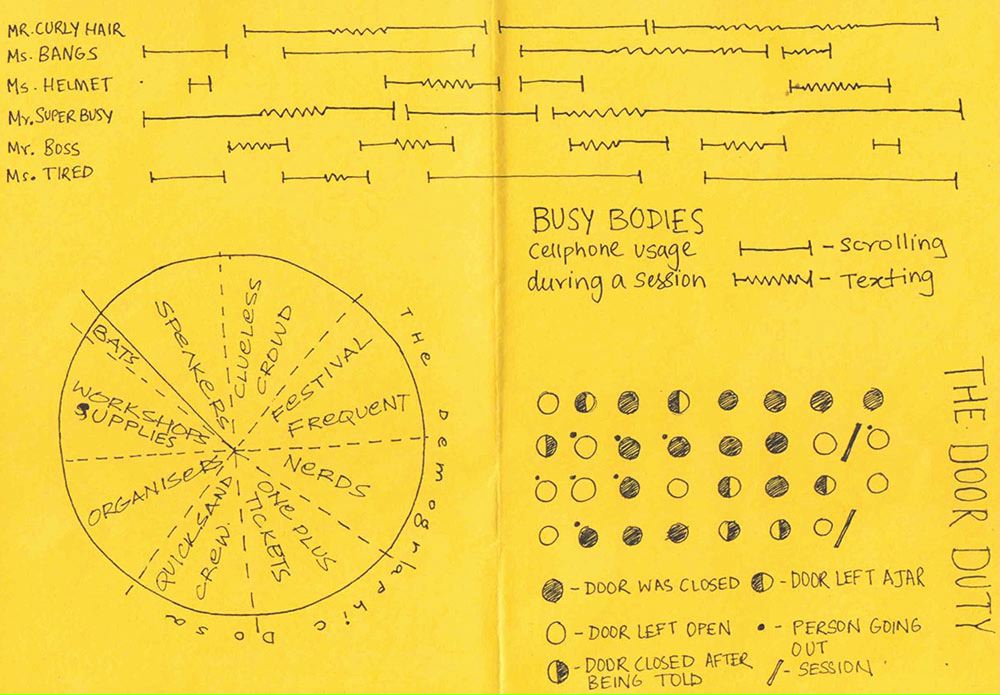 MR. CURLY HAIR
Ms. BANGS
Ms. HELMET
Mr. SUPER BUSY
Mr. BOSS
Ms. TIRED
BUSY BODIES
cellphone usage
during a session
- Scrolling
- Texting
BATS
SPEAKERS
CLUELESS
CROWD
FESTIVAL
FREQUENT
NERDS
ONE PLUS
TICKETS
QUICKSAND
CREW.
ORGANISERS
WORKSHOPS
SUPPLIES
THe Demographic Dosa
THE DOOR DUTY
- DOOR WAS CLOSED
- DOOR LEFT AJAR
- DOOR LEFT OPEN
- PERSON GOING
OUT
- DOOR CLOSED AFTER
BEING TOLD
- SESSION